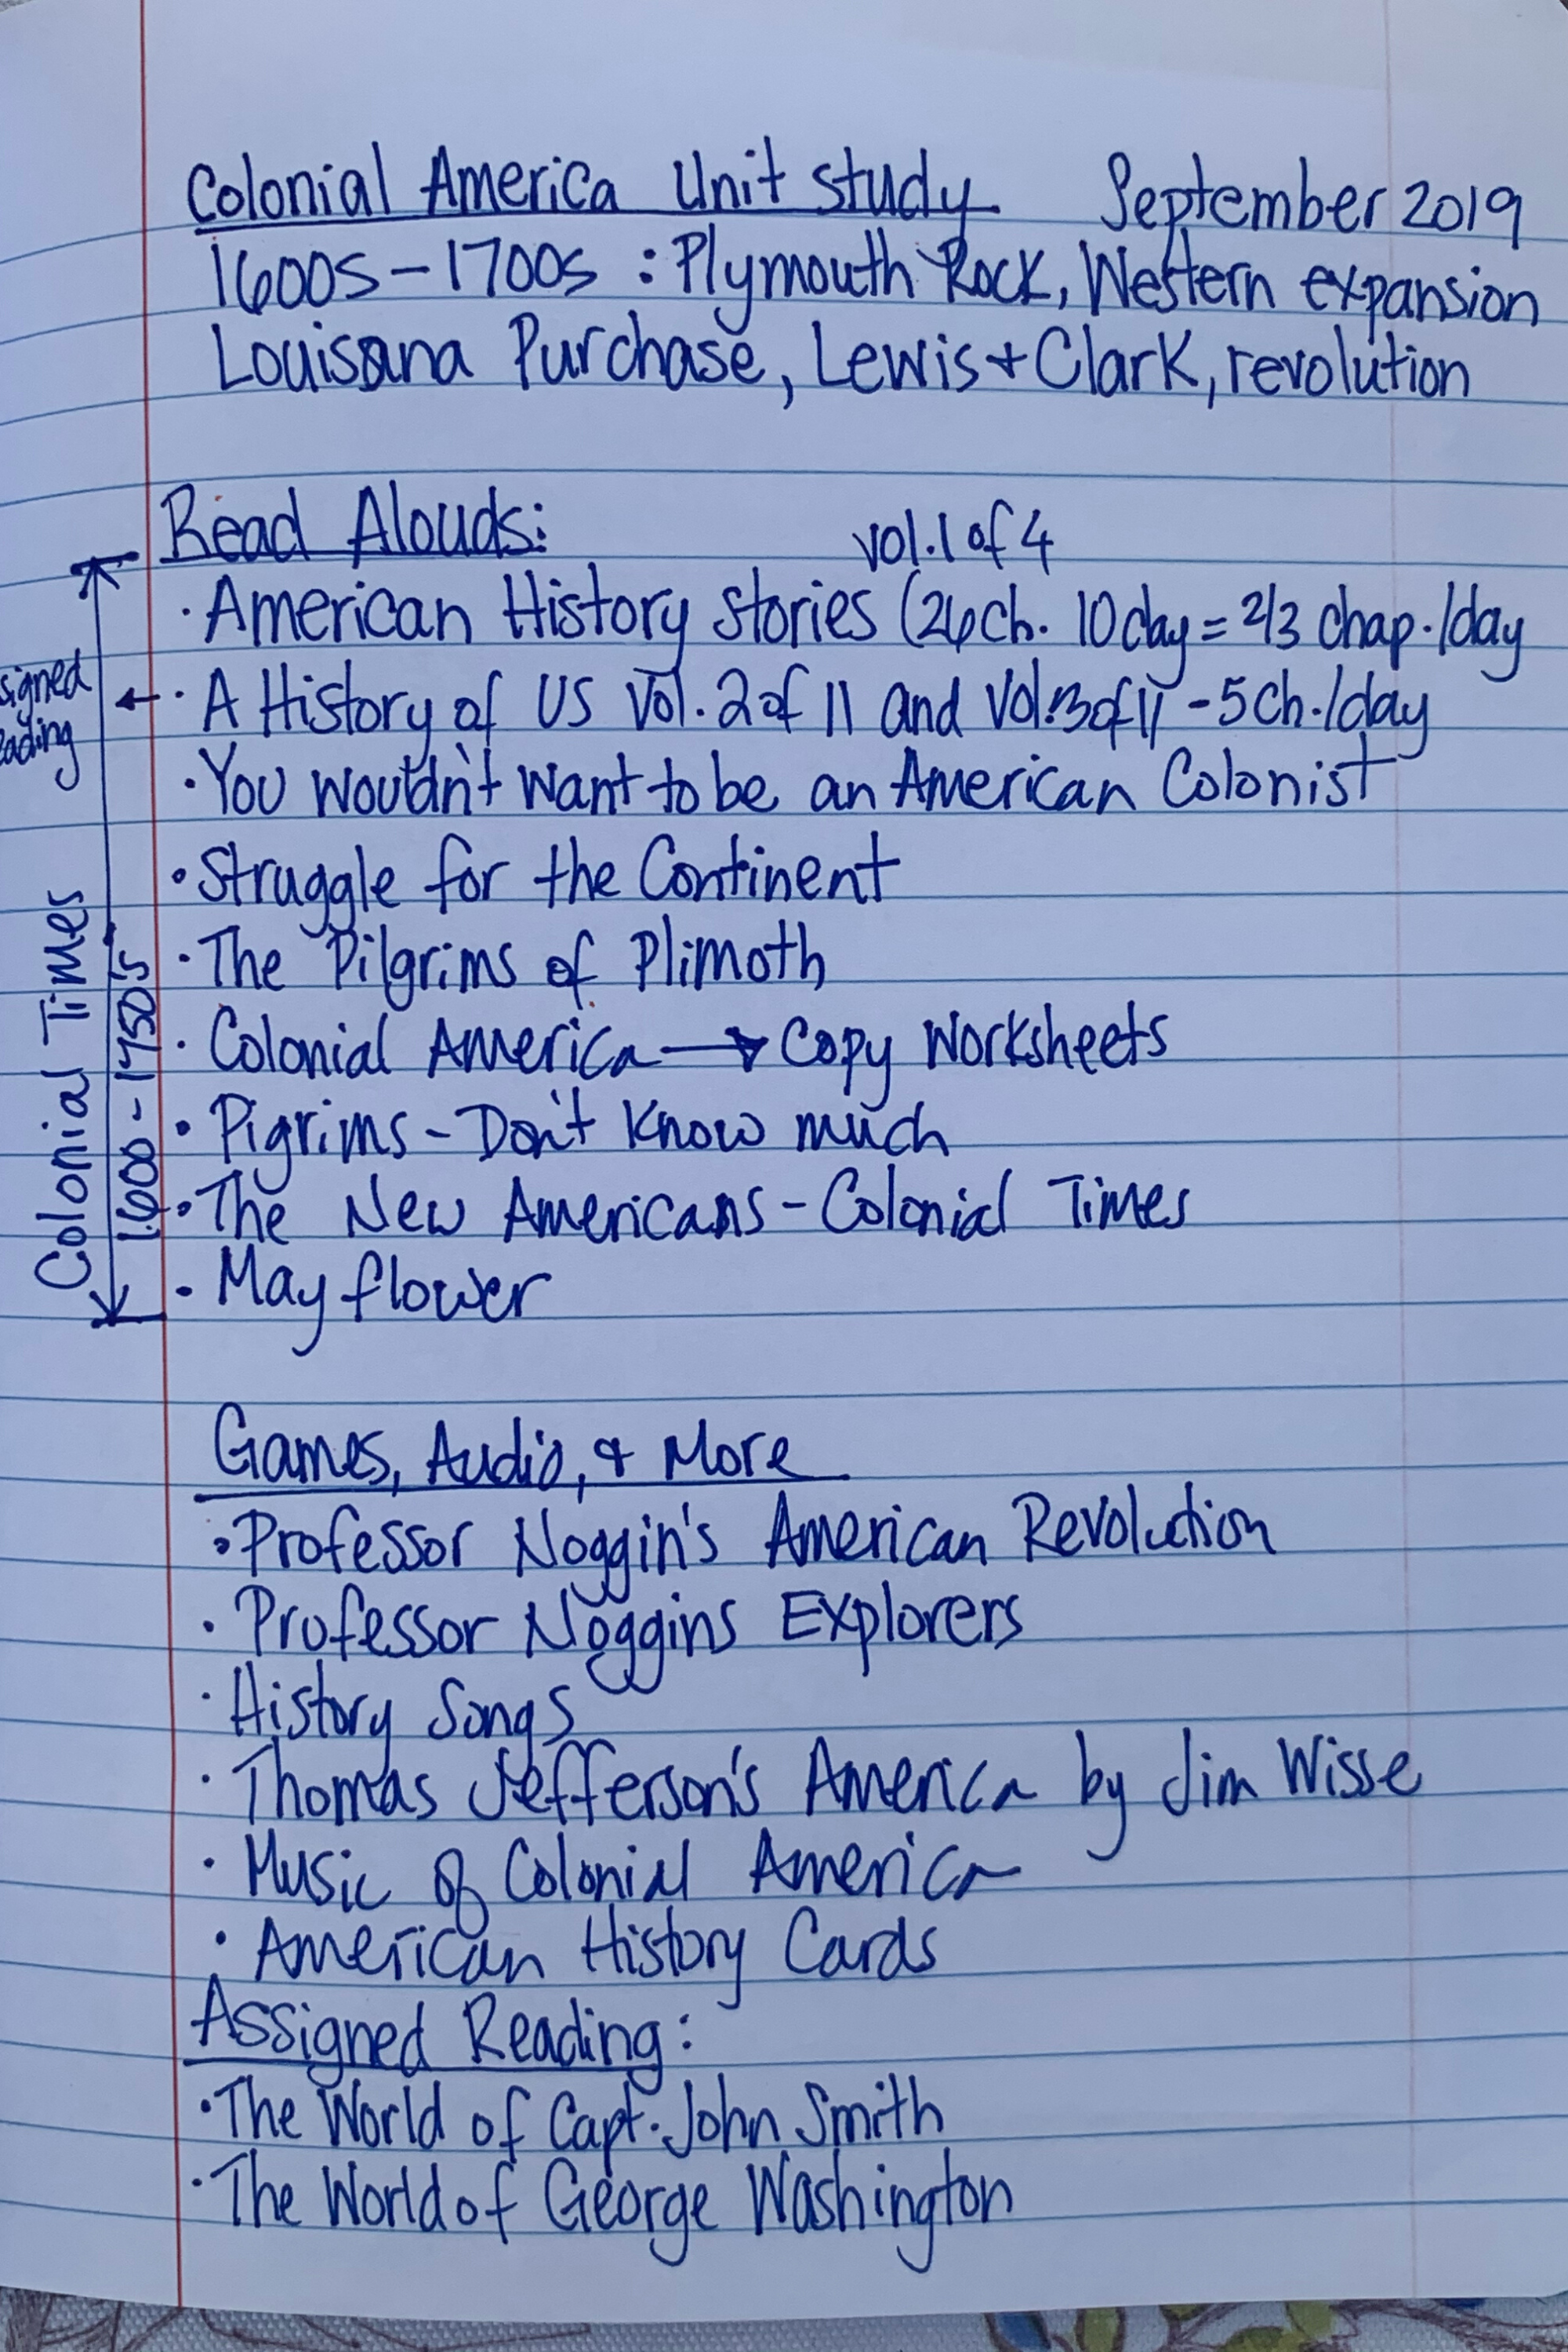 Colonial America Unit study September 2019
1600s-1700s : Plymouth Rock, Western expansion
Louisana Purchase, Lewis + Clark, revolution
Read Alouds: vol. 1 of 4
· American History Stories (26 ch. 10 day = 2/3 chap./day
signed
eading
← · A History of US Vol. 2 of 11 and Vol. 3 of 11 - 5 Ch./day
· You wouldn't want to be an American Colonist
· Struggle for the Continent
· The Pilgrims of Plimoth
· Colonial America → Copy Worksheets
· Pigrims - Don't Know much
· The New Americans - Colonial Times
· Mayflower
Colonial Times
1600-1750's
Games, Audio, & More
· Professor Noggin's American Revolution
· Professor Noggins Explorers
· History Songs
· Thomas Jefferson's America by Jim Wisse
· Music of Colonial America
· American History Cards
Assigned Reading:
· The World of Capt. John Smith
· The World of George Washington